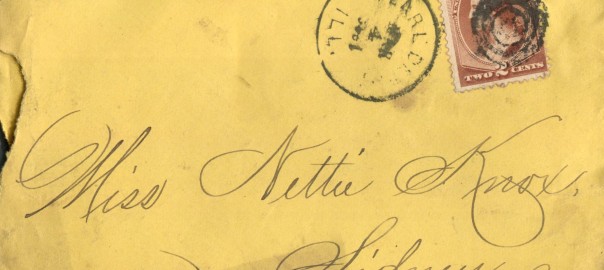 ILL.
TWO 2 CENTS
Miss Nettie Knox,
Sidney